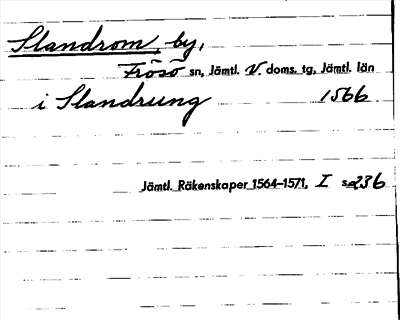 Slandrom, by,
Frösö sn, Jämtl. V. doms. tg, Jämtl. län
i Slandrung 1566
Jämtl. Räkenskaper 1564–1571, I s. 236